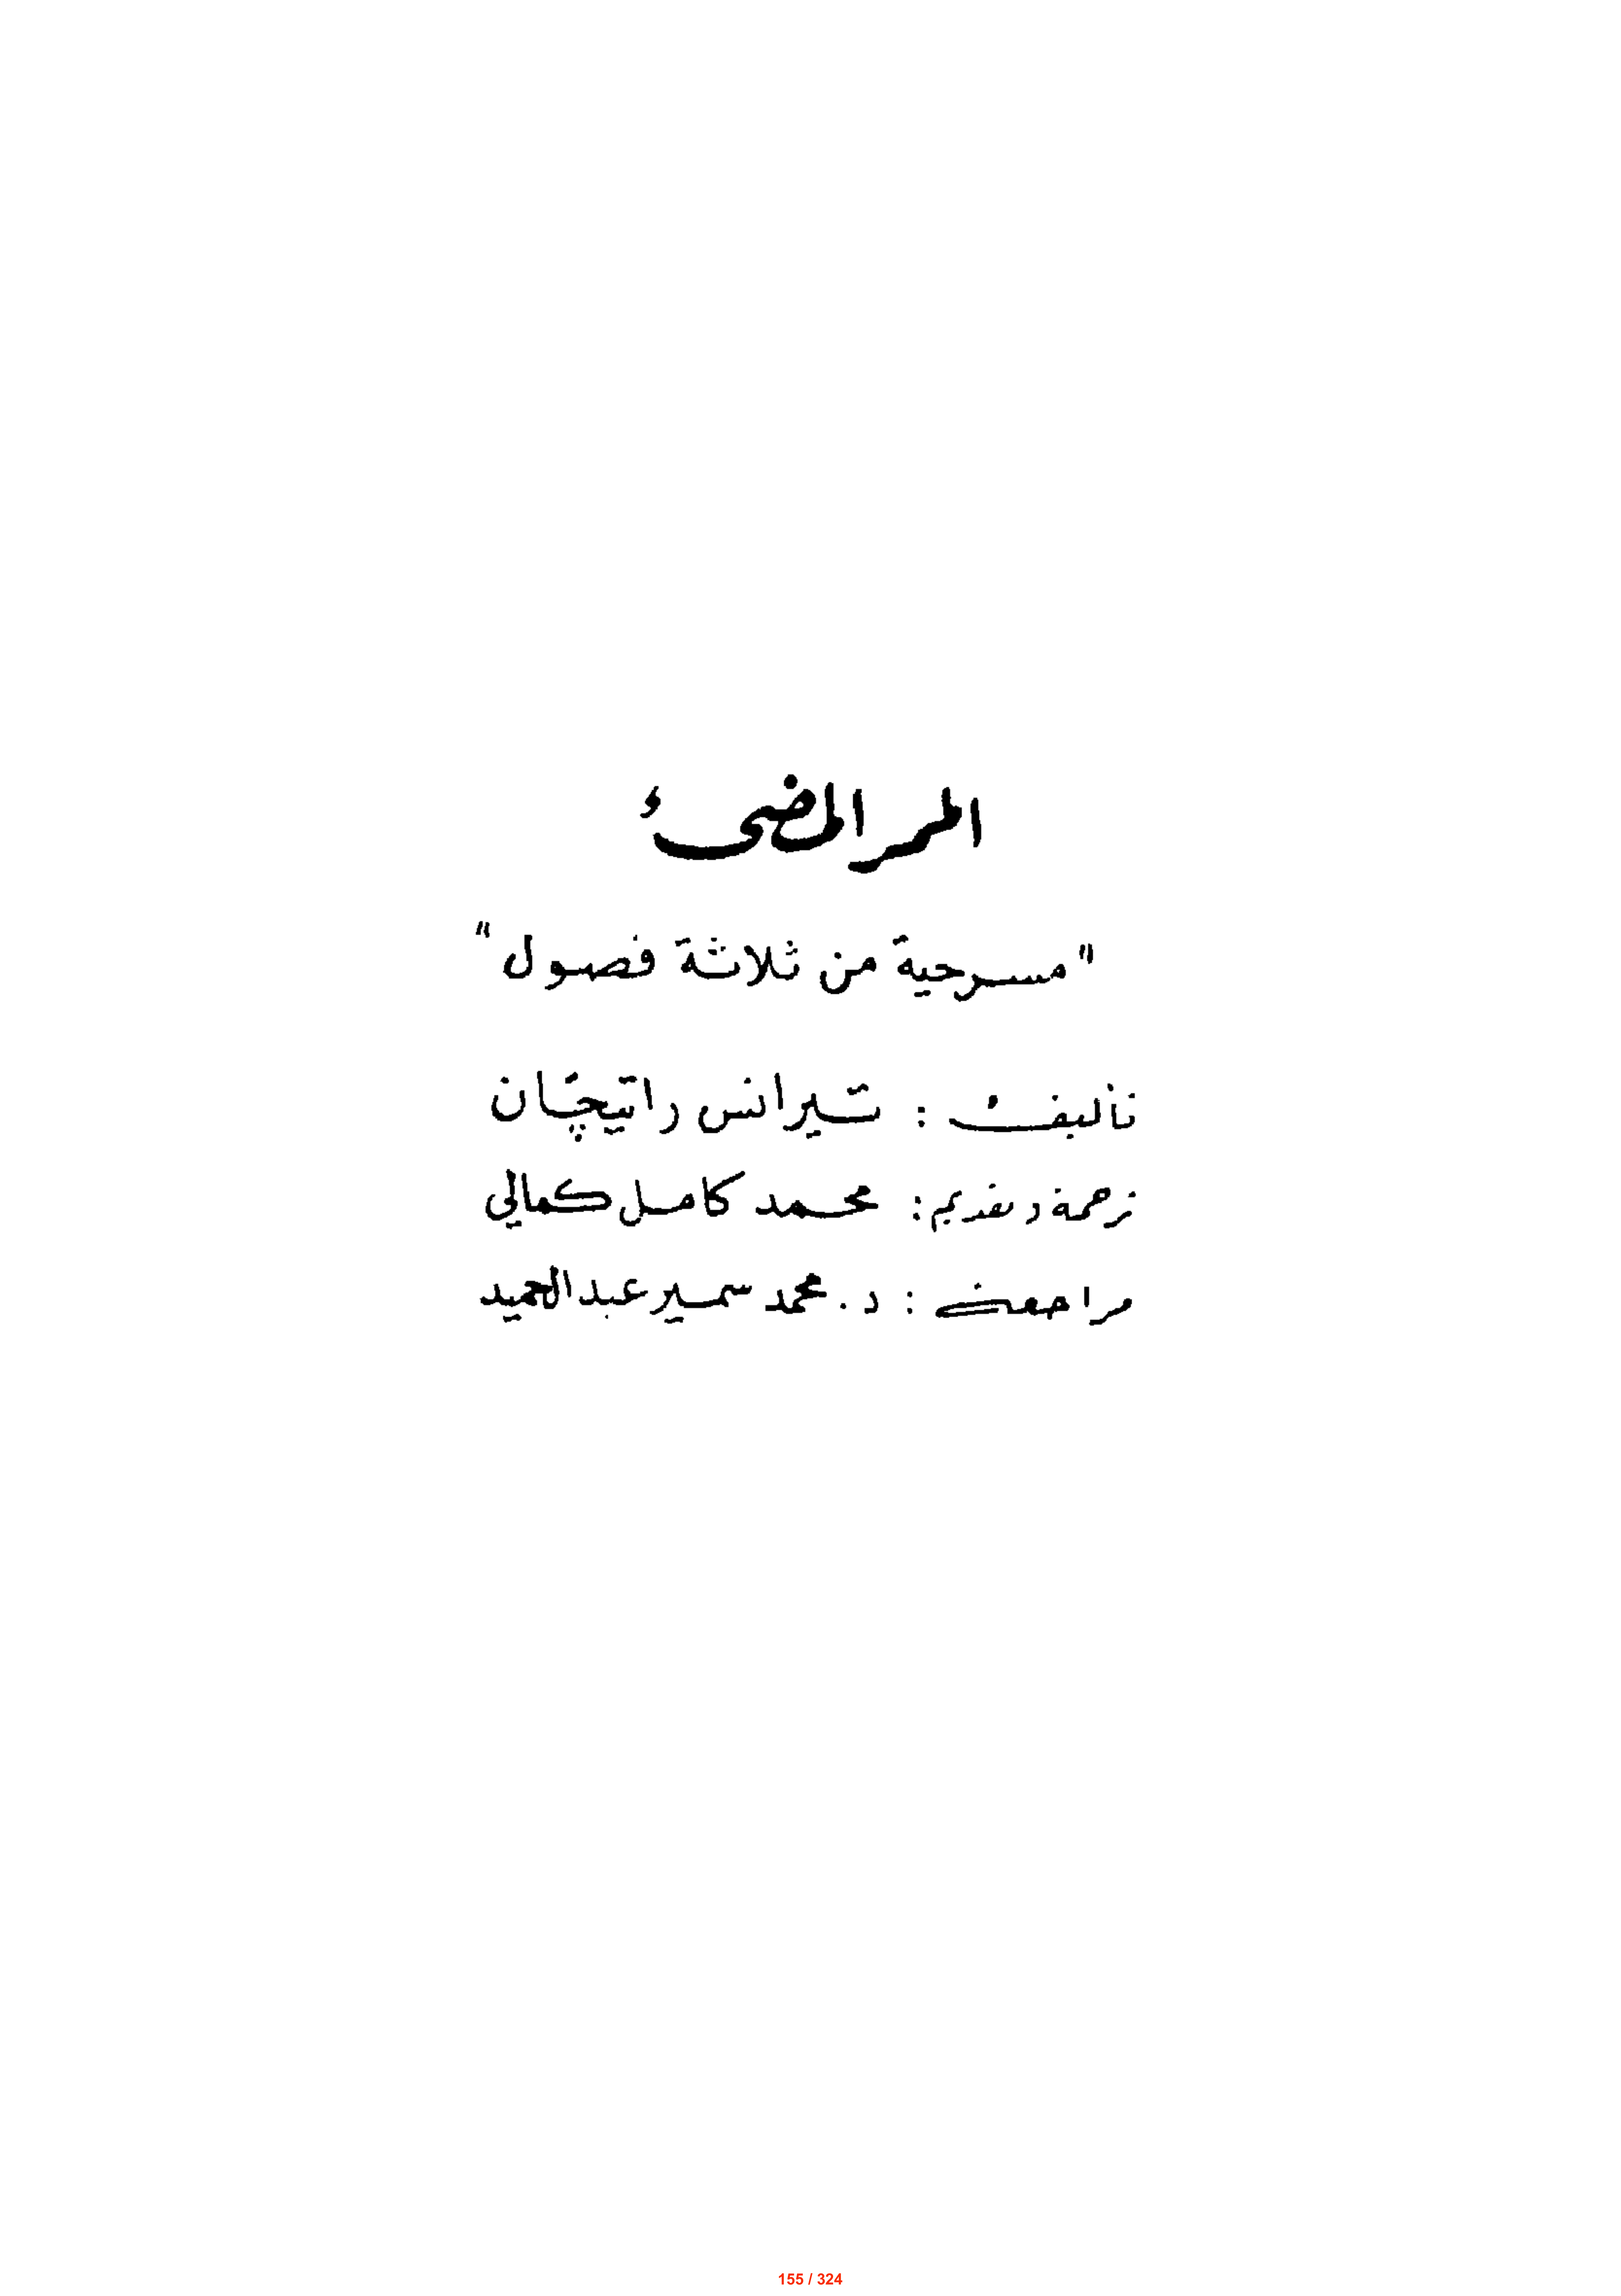 الممر المضىء
"مسرحية من ثلاثة فصول"
تأليف : تيرانس راتيچان
ترجمة وتقديم : محمد كامل كمالي
مراجعة : د. محمد سمير عبد الحميد
155 / 324